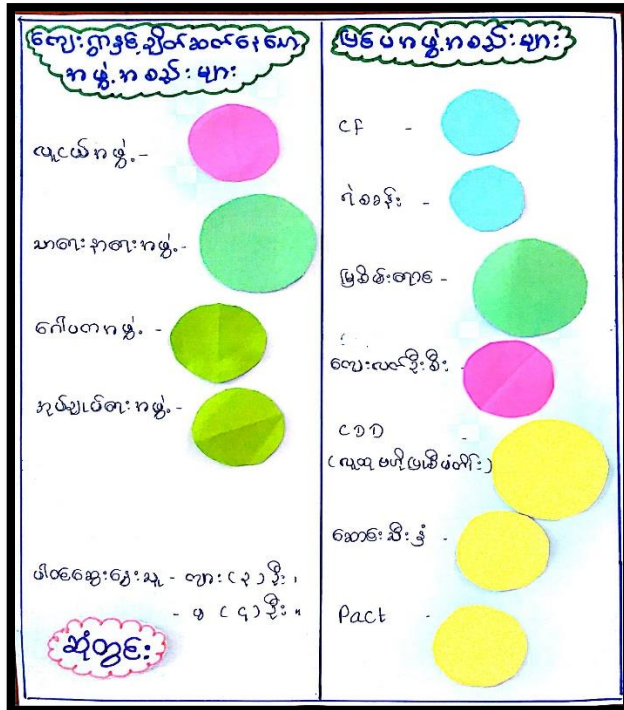 ကျေးရွာနှင့်ချိတ်ဆက်နေသော
အဖွဲ့အစည်းများ
လူငယ်အဖွဲ့. -
သာရေးနာရေးအဖွဲ့. -
ဂေါပကအဖွဲ့. -
အုပ်ချုပ်ရေးအဖွဲ့. -
ပါဝင်ဆွေးနွေးသူ - ကျား (၃) ဦး ၊
- မ (၄) ဦး ။
ဆုံတွင်း
မြစ်ပေအဖွဲ့အစည်းများ
CF -
ရဲစခန်း -
မြစိမ်းရောင် -
ကျေးလက်ဦးစီး -
CDD -
(လူထုဗဟိုပြုစီမံကိန်း)
ဆောင်းသီးနှံ -
Pact -